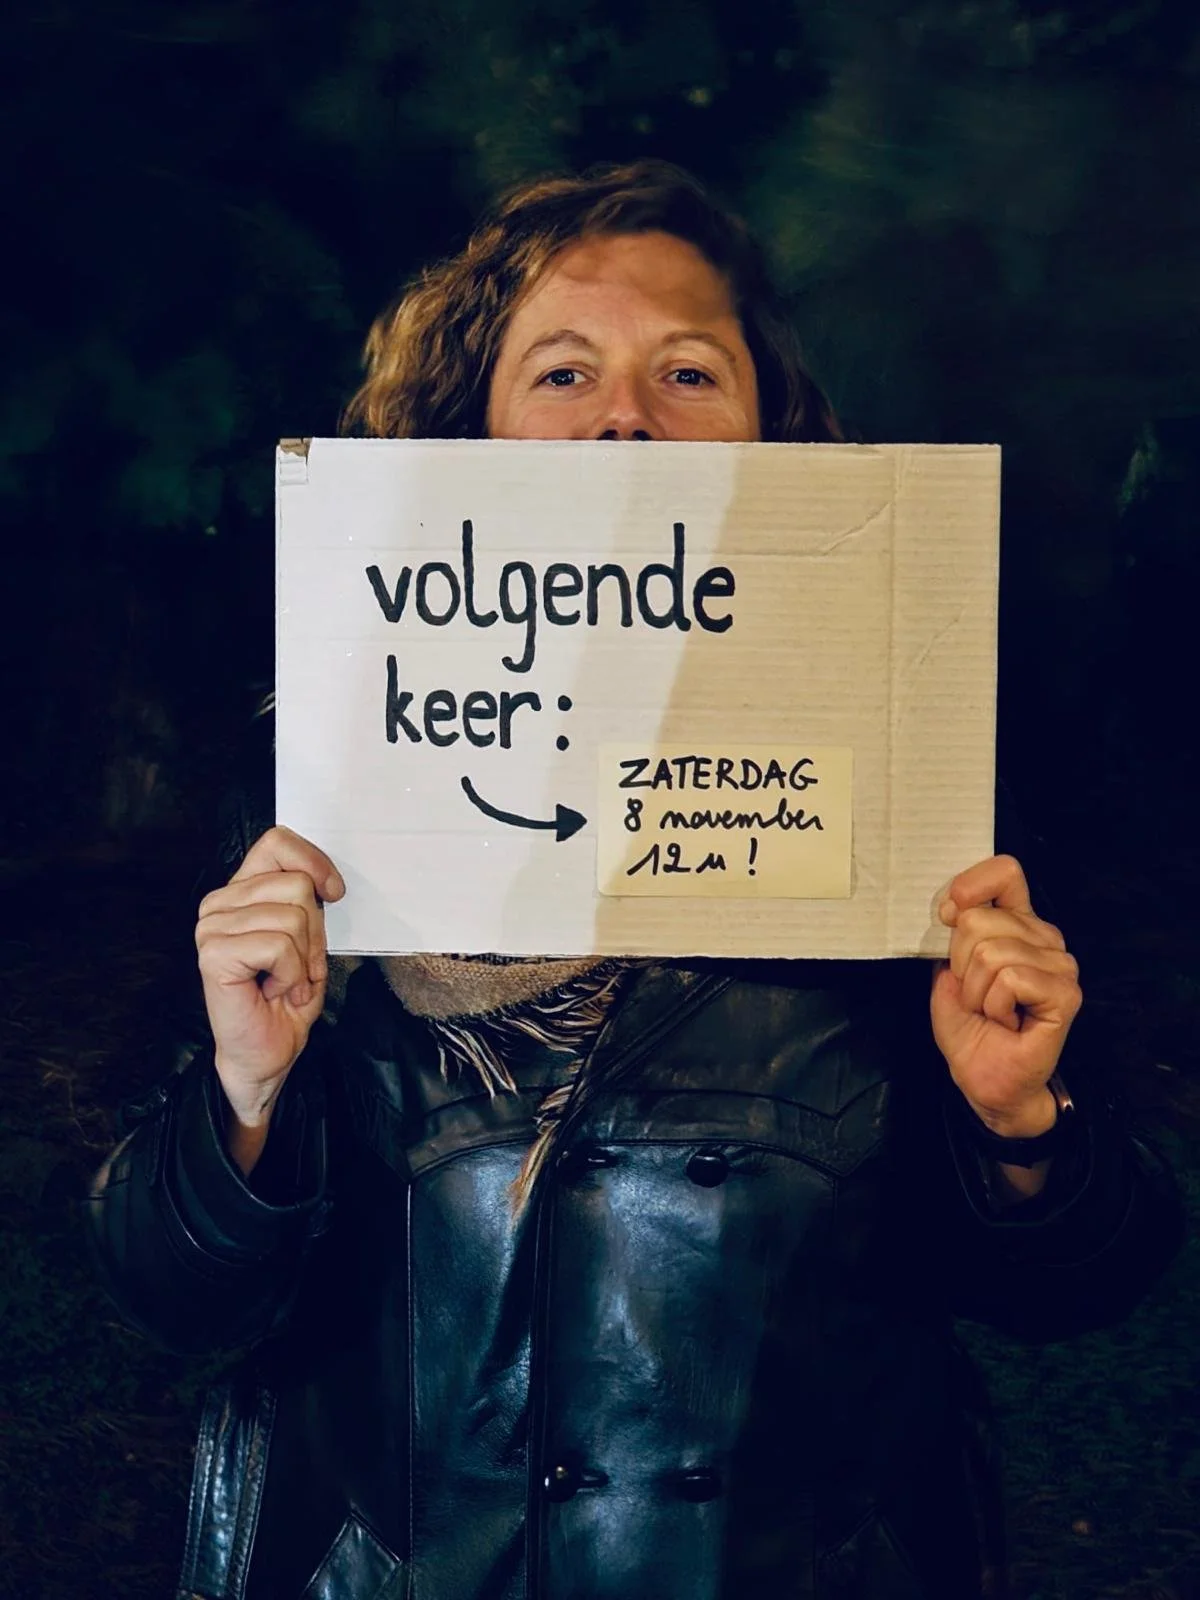 volgende
keer:
ZATERDAG
8 november
12 u!